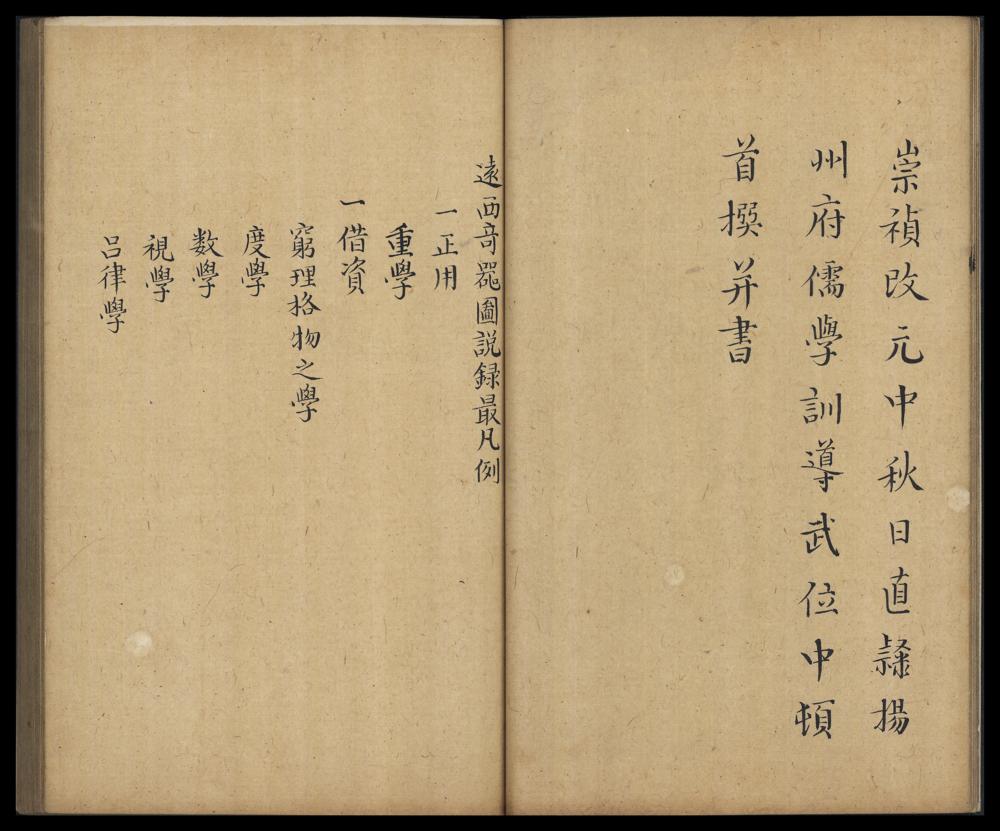 崇禎改元中秋日直隷揚
州府儒學訓導武位中頓
首撰并書
遠西竒噐圖説録最凡例
一正用
重學
一借資
窮理格物之學
度學
数學
視學
吕律學